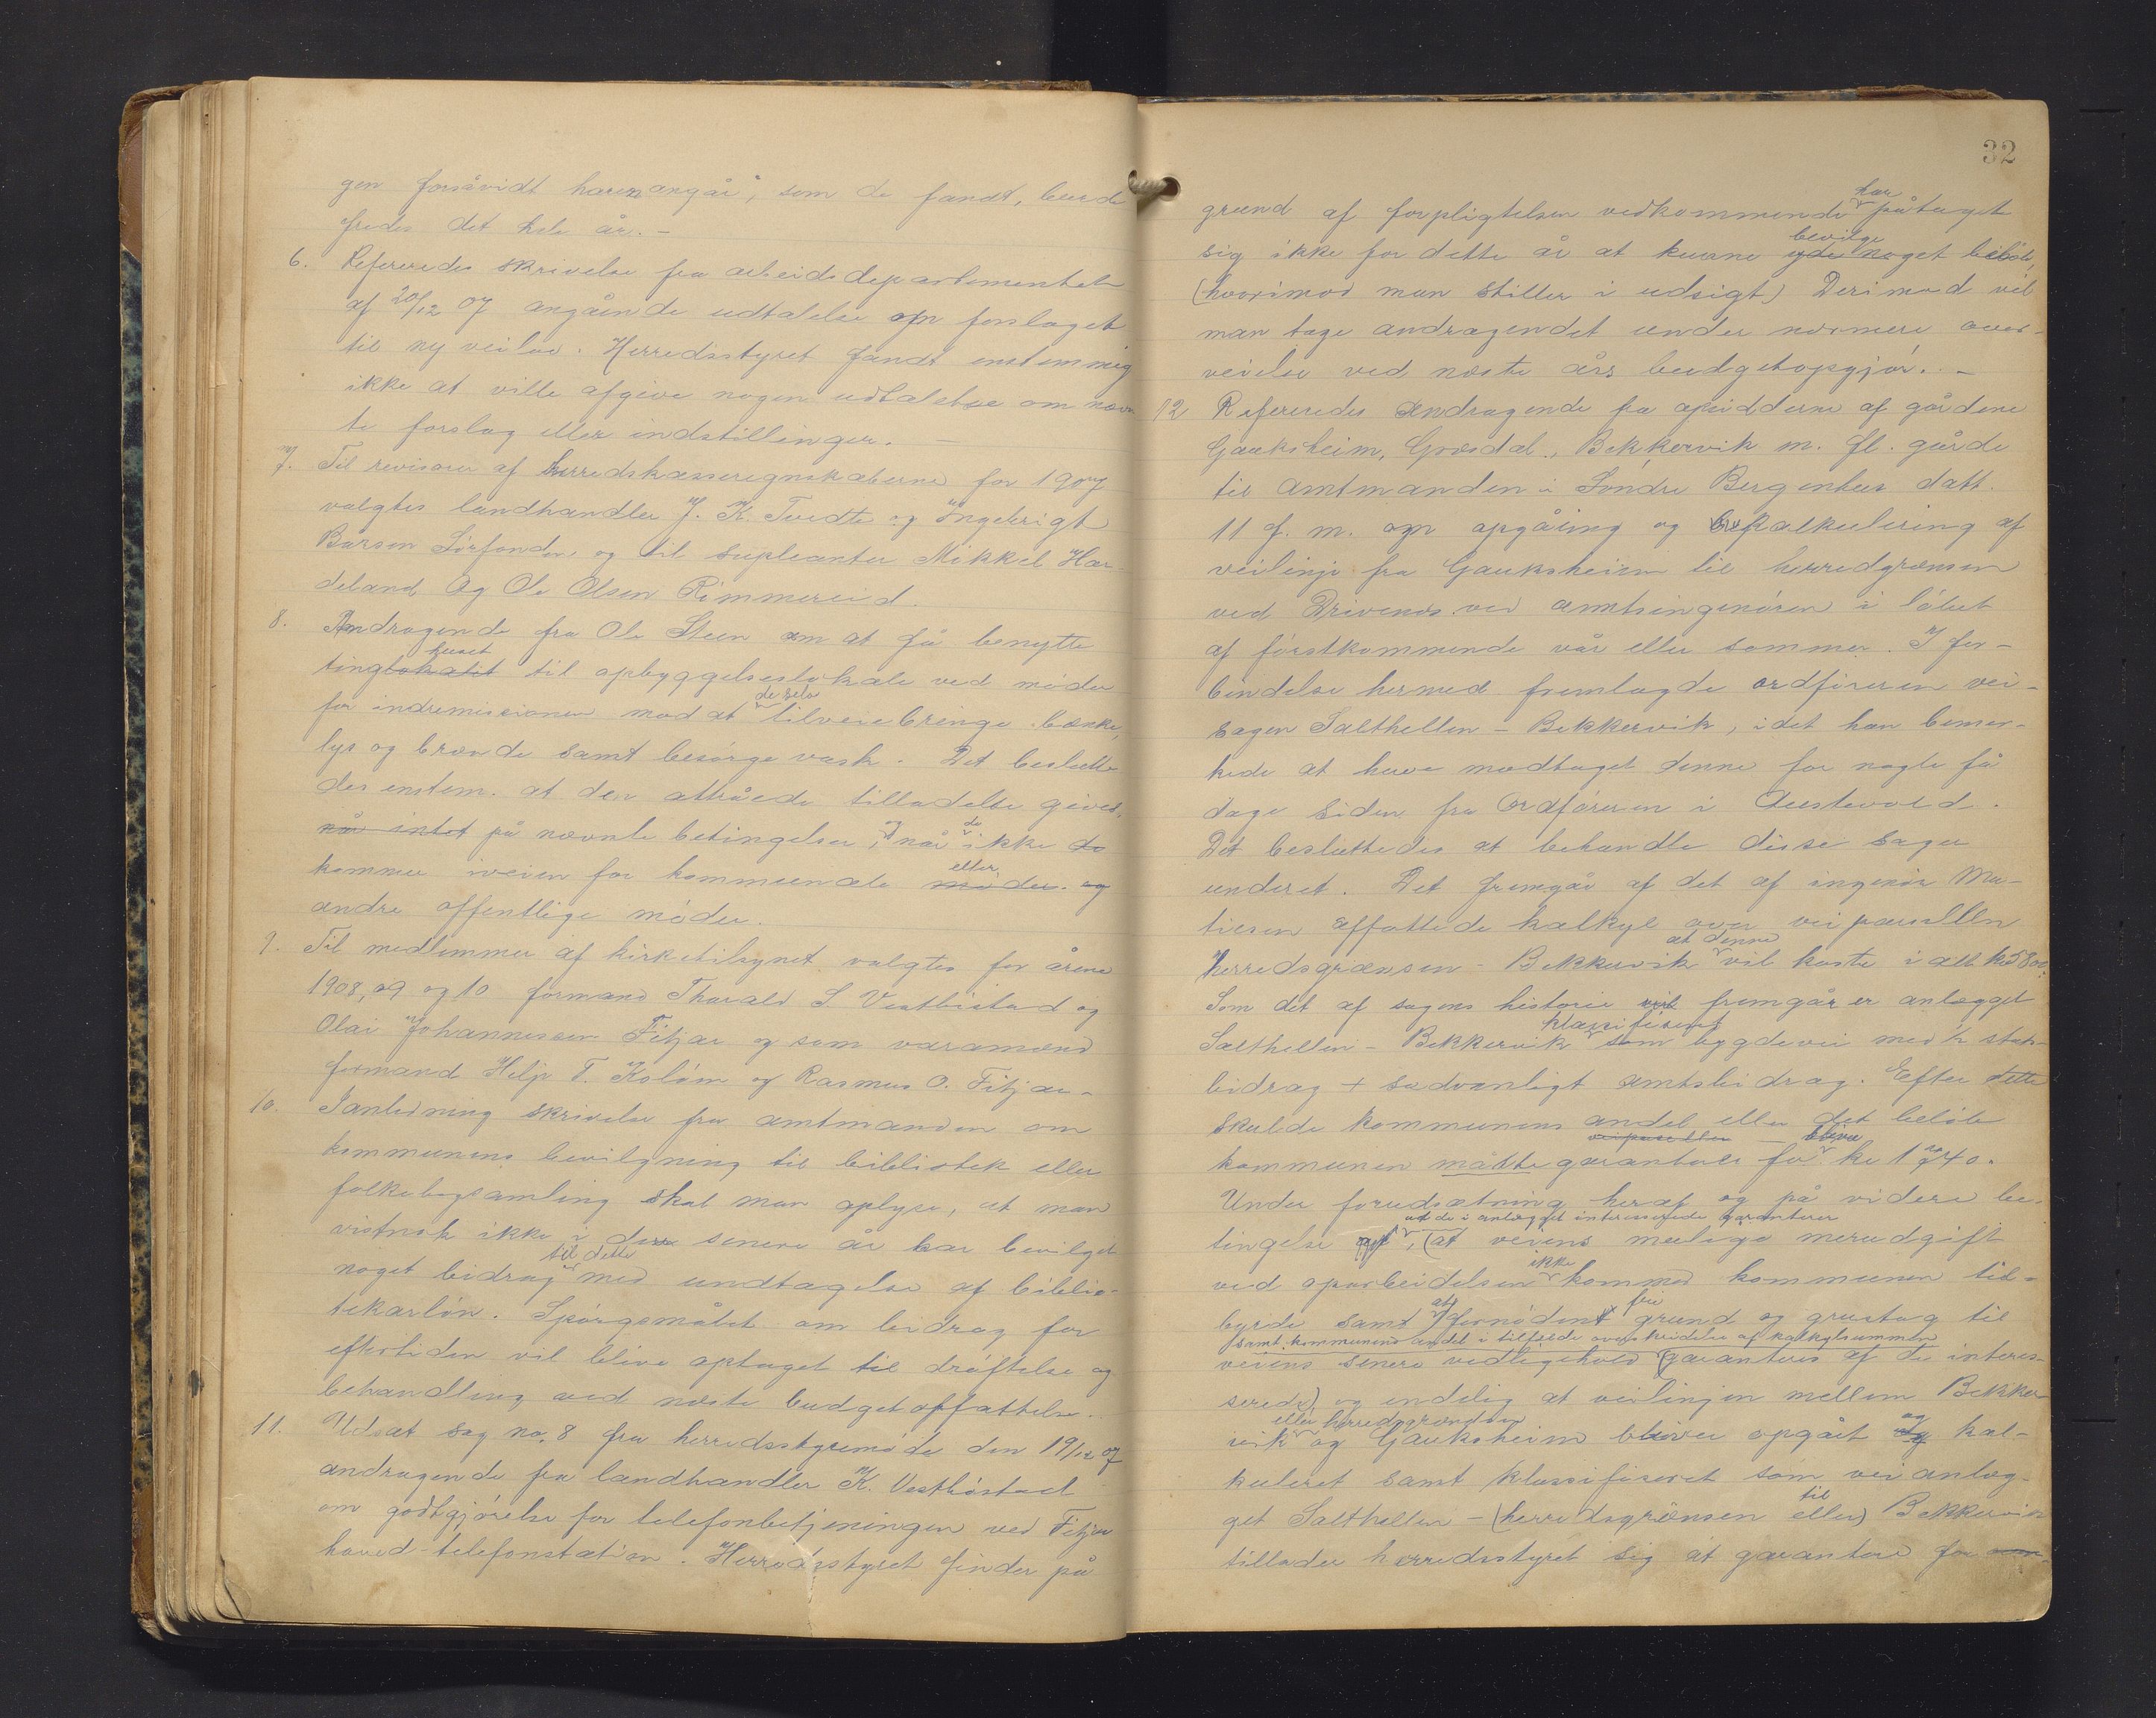 gen forsåvidt haren angår", som de fandt, burde
fredes det hele år. -
6. Refereredes skrivelse fra arbeidsdepartementet
af 20/12 07 angående udtalelse om forslaget
til ny veilov. Herredsstyret fandt enstemmig
ikke at ville afgive nogen udtalelse om nævn
te forslag eller indstillinger. -
7. Til revisorer af herredskasseregnskaberne for 1907
valgtes landhandler J. K. Tvedte og Ingebrigt
Larsen Sørfonden og til supleanter Mikkel Har-
deland og Ole Olsen Rimmereid.
8. Andragende fra Ole Steen om at få benytte
huset
tinglokalet til opbyggelseslokale ved møder
de selv
for indremissionen mod at tilveiebringe bænke,
lys og brænde samt besørge vask. Det beslutte
des enstem. at den attråede tilladelse gives,
og de
når intet på nævnte betingelser, når ikke de
eller
kommer iveien for kommunale møder og
andre offentlige møder.
9. Til medlemmer af kirketilsynet valgtes for årene
1908, 09 og 10 formand Thorald S Vestbøstad og
Olai Johannessen Fitjar og som varamænd
formand Helje T. Koløen og Rasmus O. Fitjar -
10. I anledning skrivelse fra amtmanden om
kommunens bevilgning til bibliotek eller
folkebogsamling skal man oplyse, at man
vistnok ikke i de senere år har bevilget
til dette
noget bidrag med undtagelse af biblio-
tekarløn. Spørgsmålet om bidrag for
eftertiden vil blive optaget til drøftelse og
behandling ved næste budgetopfattelse.
11. Udsat sag no. 8 fra herredsstyremøde den 19/12 07
andragende fra landhandler K. Vestbøstad
om godtgjørelse for telefonbetjeningen ved Fitjar
hoved-telefonstation. Herredsstyret finder på
32
har
grund af forpligtelsen vedkommende påtaget
bevilge
sig ikke for dette år at kunne yde noget beløb,
(hvorimod man stiller i udsigt) Derimod vil
man tage andragendet under nærmere over-
veielse ved næste års budgetopgjør. -
12 Refereredes Andragende fra opsidderne af gårdene
Gauksheim, Græsdal, Bekkervik m. fl. gårde
til amtmanden i Søndre Bergenhus datt.
11 f. m. om opgåing og kalkulering af
veilinje fra Gauksheim til herredgrænsen
ved Drivenes ved amtsingeniøren i løbet
af førstkommende vår eller sommer. I for-
bindelse hermed fremlagde ordføreren vei-
sagen Salthellen - Bekkervik, idet han bemær-
kede at have modtaget denne for nogle få
dage siden fra Ordføreren i Austevold.
Det besluttedes at behandle disse sager
underet. Det fremgår af det af ingeniør Ma-
tiesen affattede kalkyl over veiparsellen
at denne
Herredsgrænsen - Bekkervik vil koste ialt kr 5800.
Som det af sagens historie vil fremgår er anlægget
klassifiseret
Salthellen - Bekkervik som bygdevei med ½ stats-
bidrag + sædvanligt amtsbidrag. Efter dette
skulde kommunens andel eller det beløb
veiparsellen - blive
kommunen måtte garantere for kr 1740.
Under forudsætning heraf og på videre be-
at de i anlægget interesserede garanterer
tingelse af, (at veiens mulige merudgift
ikke
ved oparbeidelsen kommer kommunen til-
at fri
byrde samt fornødent grund og grustag til
samt kommunens andel i tilfælde overskridelse af kalkylsummen
veiens senere vedligehold (garanteres af de interes-
serede) og endelig at veilinjen mellem Bekker-
eller herredsgrænsen
vik og Gauksheim bliver opgået og kal-
kuleret samt klassifiseret som veianlæg-
til
get Salthellen - (herredsgrænsen eller) Bekkervik
tillader herredsstyret sig at garantere for